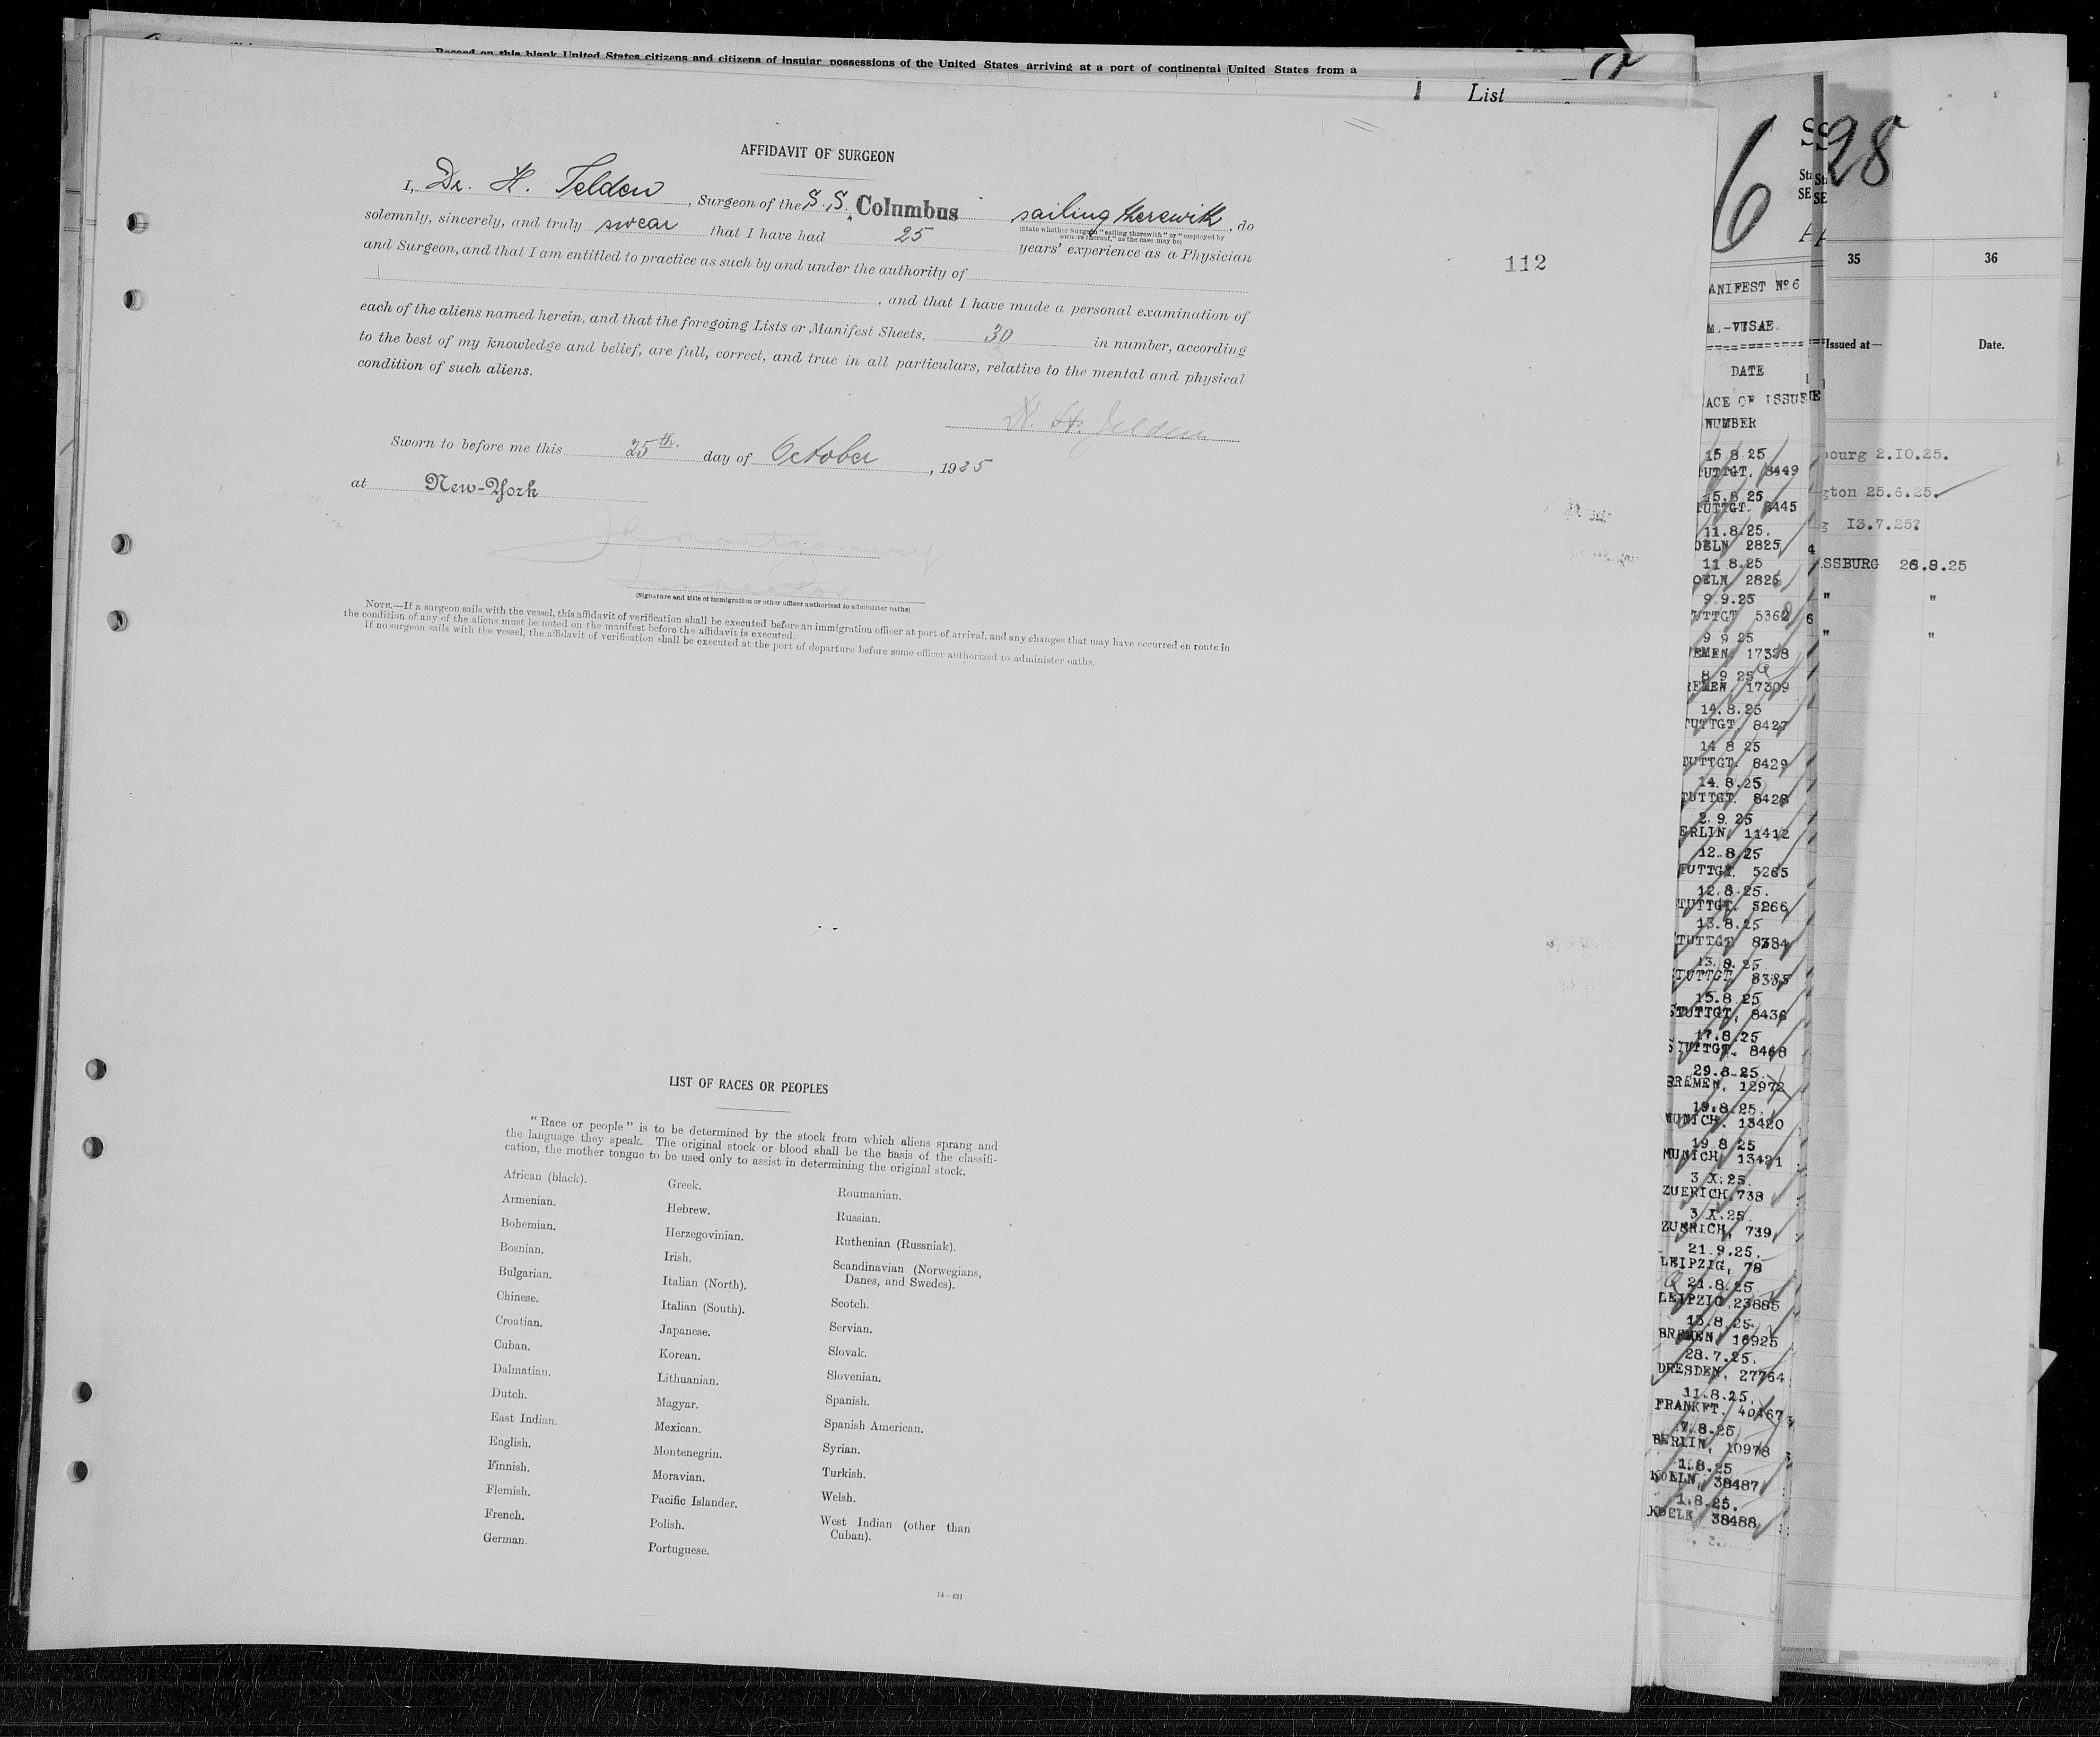 Record on this blank United States citizens and citizens of insular possessions of the United States arriving at a port of continental United States from a
List
AFFIDAVIT OF SURGEON
I, Dr. H. Telden, Surgeon of the S.S. "Columbus sailing therewith, do
(State whether Surgeon "sailing therewith" or "employed by
owners thereof," as the case may be)
solemnly, sincerely, and truly swear that I have had 25 years' experience as a Physician
and Surgeon, and that I am entitled to practice as such by and under the authority of
, and that I have made a personal examination of
each of the aliens named herein, and that the foregoing Lists or Manifest Sheets, 30 in number, according
to the best of my knowledge and belief, are full, correct, and true in all particulars, relative to the mental and physical
condition of such aliens.
112
Sworn to before me this 25th. day of October, 1925
at New-York
Montgomery
Inspector
(Signature and title of immigration or other officer authorized to administer oaths)
NOTE.—If a surgeon sails with the vessel, this affidavit of verification shall be executed before an immigration officer at port of arrival, and any changes that may have occurred en route in
the condition of any of the aliens must be noted on the manifest before the affidavit is executed.
If no surgeon sails with the vessel, the affidavit of verification shall be executed at the port of departure before some officer authorized to administer oaths.
LIST OF RACES OR PEOPLES
"Race or people" is to be determined by the stock from which aliens sprang and
the language they speak. The original stock or blood shall be the basis of the classifi-
cation, the mother tongue to be used only to assist in determining the original stock.
African (black).
Armenian.
Bohemian.
Bosnian.
Bulgarian.
Chinese.
Croatian.
Cuban.
Dalmatian.
Dutch.
East Indian.
English.
Finnish.
Flemish.
French.
German.
Greek.
Hebrew.
Herzegovinian.
Irish.
Italian (North).
Italian (South).
Japanese.
Korean.
Lithuanian.
Magyar.
Mexican.
Montenegrin.
Moravian.
Pacific Islander.
Polish.
Portuguese.
Roumanian.
Russian.
Ruthenian (Russniak).
Scandinavian (Norwegians,
Danes, and Swedes).
Scotch.
Servian.
Slovak.
Slovenian.
Spanish.
Spanish American.
Syrian.
Turkish.
Welsh.
West Indian (other than
Cuban).
14—431
6
ANIFEST No 6
M.-VISAE.
DATE
ACE OF ISSUE
NUMBER
15 8 25
TUTTGT. 8449
15.8 25
TUTTGT. 8445
11.8.25.
OELN 2825
11 8.25
OELN 2826
9.9.25
TUTTGT 5362
9 9 25
EMEN. 17328
8 9 25
REMEN. 17309
14.8.25
TUTTGT. 8427
14 8 25
TUTTGT. 8429
14.8.25
TUTTGT. 8428
2.9.25
ERLIN, 11412
12.8.25
TUTTGT. 5265
12.8.25.
TUTTGT. 5266
13.8.25
TUTTGT 8384
13.8.25.
STUTTGT, 8385
15.8.25
STUTTGT, 8436
17.8.25
STUTTGT. 8468
29.8.25.
BREMEN. 12972
19.8.25.
MUNICH. 13420
19 8 25
MUNICH, 13421
3 X.25.
ZUERICH, 738
3 X.25.
ZUERICH, 739
21.9.25.
LEIPZIG, 78
21.8.25
LEIPZIG, 23885
13.8.25.
BREMEN, 16925
28.7.25.
DRESDEN, 27764
11.8.25.
FRANKFT. 40467
7.8.25
BERLIN, 10978
1.8.25
KOELN, 38487
1.8.25.
KOELN 38488
28
35
36
Issued at—
Date.
bourg 2.10.25.
gton 25.6.25.
g 13.7.25?
SSBURG 26.8.25
" "
" "